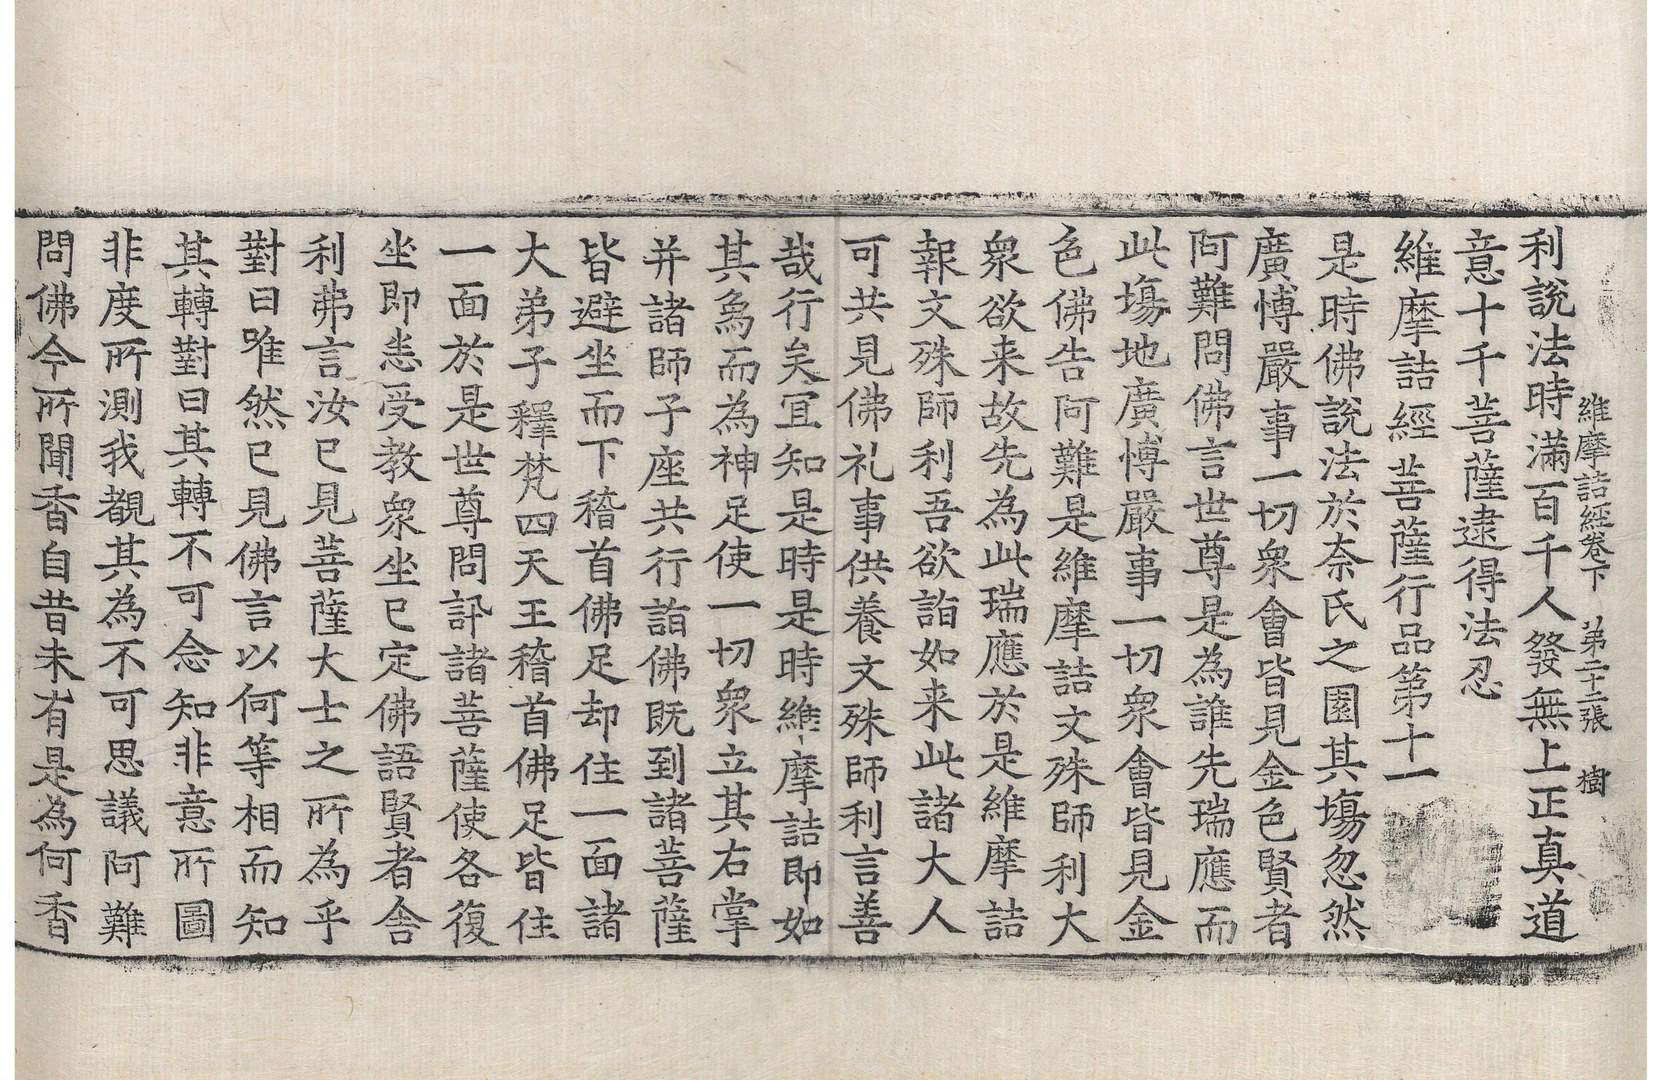 維摩詰經卷下　第二十二張　樹
利說法時滿百千人發無上正真道
意十千菩薩逮得法忍
維摩詰經菩薩行品第十一
是時佛說法於奈氏之園其場忽然
廣愽嚴事一切衆會皆見金色賢者
阿難問佛言世尊是為誰先瑞應而
此場地廣愽嚴事一切衆會皆見金
色佛告阿難是維摩詰文殊師利大
衆欲来故先為此瑞應於是維摩詰
報文殊師利吾欲詣如来此諸大人
可共見佛礼事供養文殊師利言善
哉行矣冝知是時是時維摩詰即如
其爲而為神足使一切衆立其右掌
并諸師子座共行詣佛既到諸菩薩
皆避坐而下稽首佛足却住一面諸
大弟子釋梵四天王稽首佛足皆住
一面於是世尊問訊諸菩薩使各復
坐即悉受教衆坐已定佛語賢者舍
利弗言汝已見菩薩大士之所為乎
對曰唯然已見佛言以何等相而知
其轉對曰其轉不可念知非意所圖
非度所測我覩其為不可思議阿難
問佛今所聞香自昔未有是為何香